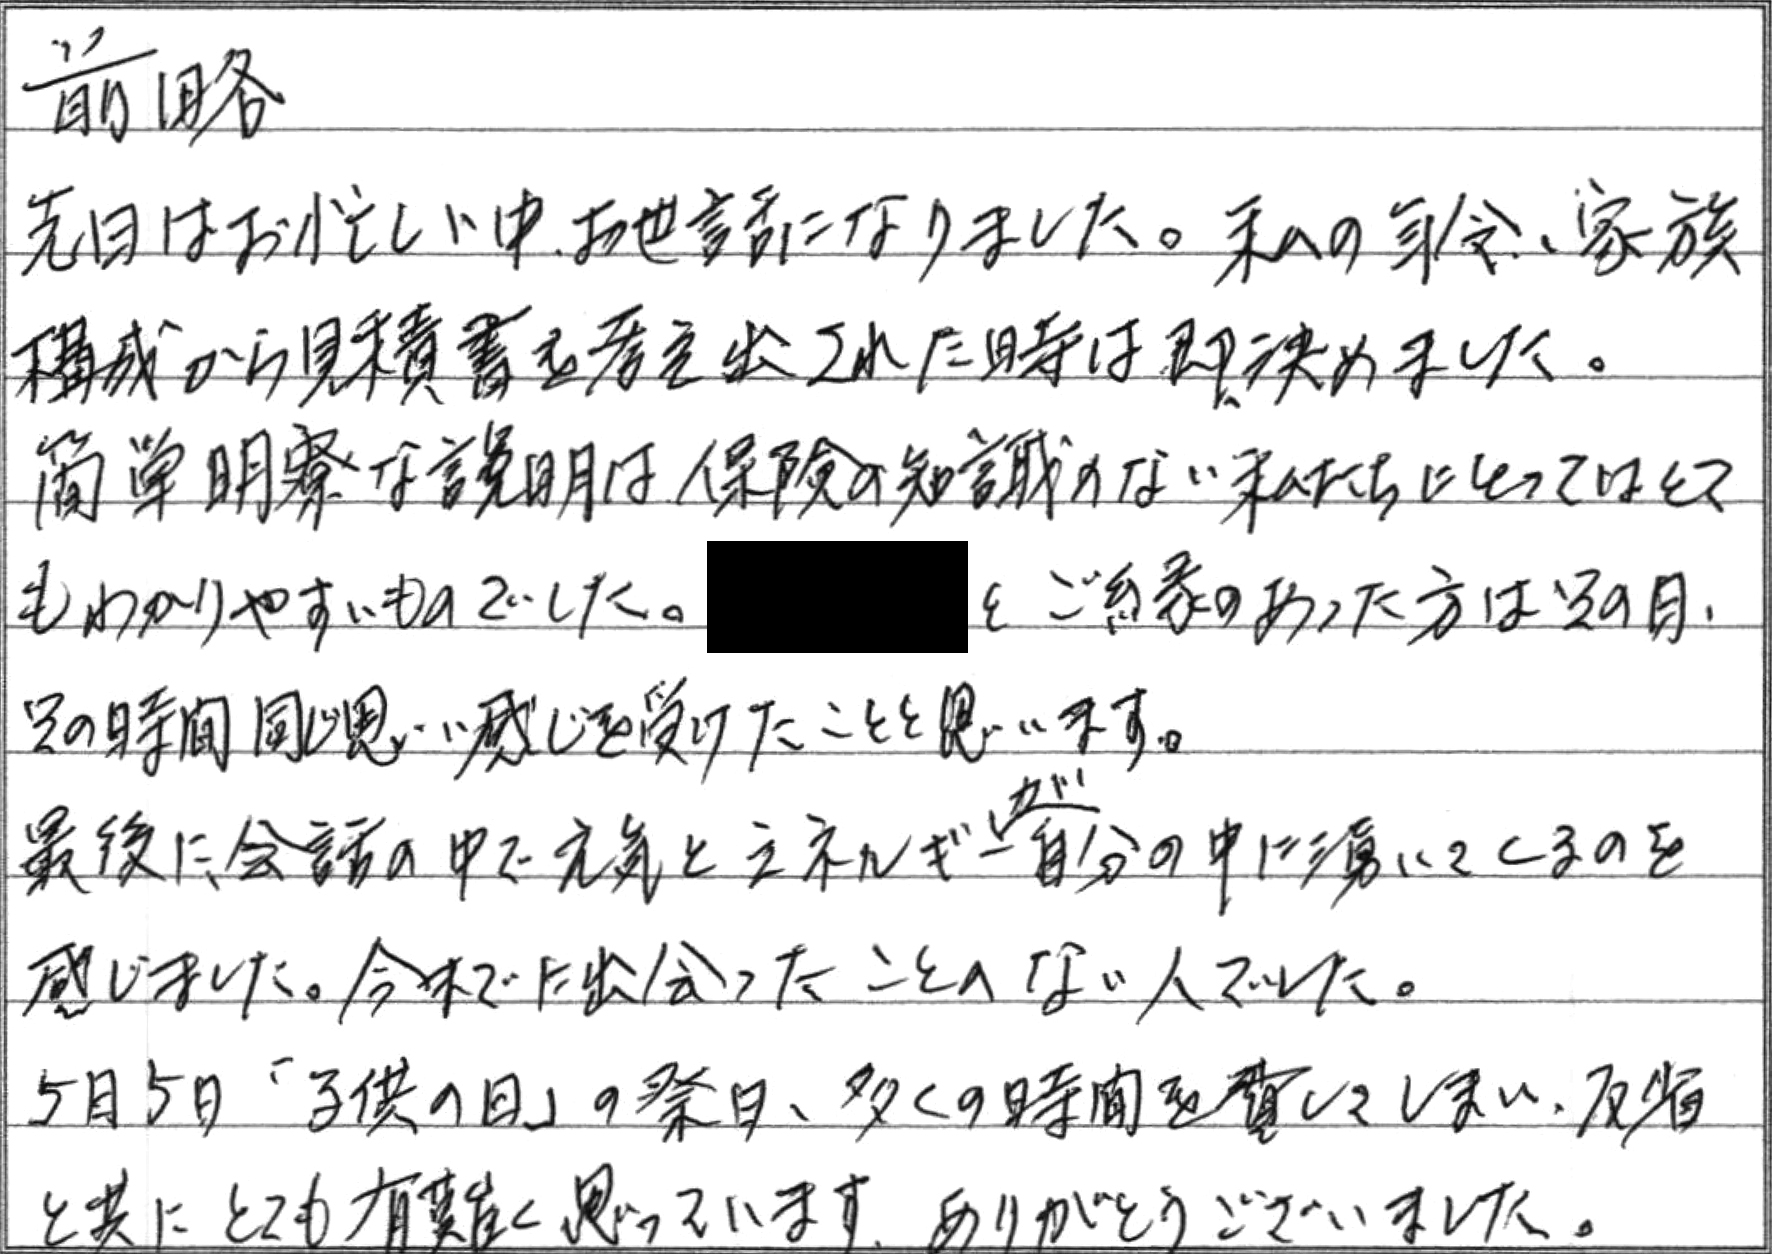 前略
先日はお忙しい中、お世話になりました。私の年令、家族
構成から見積書を考え出された時は即決めました。
簡単明寮な説明は、保険の知識のない私たちにとってはとて
もわかりやすいものでした。
とご縁のあった方は兄の日、
兄の時間同じ思いい感じを受けたことと思います。
最後に、会話の中で元気とエネルギーが自分の中に湧いてくるのを
感じました。今までに出会ったことのない人でした。
5月5日「子供の日」の祭日、多くの時間を費してしまい、反省
と共にとても有難く思っています。ありがとうございました。